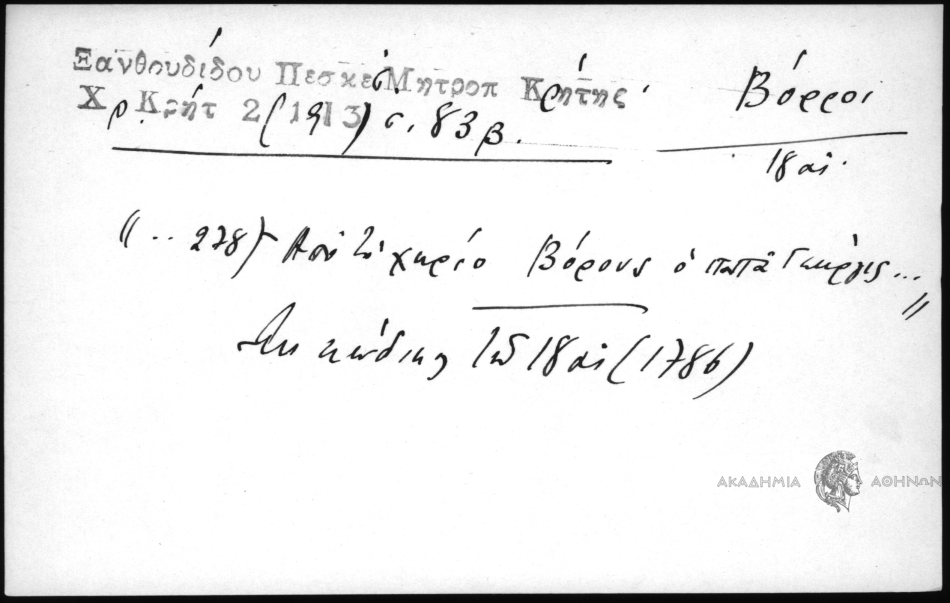 Ξανθουδίδου Πεσκέσ. Μητροπ Κρήτης.
Χρ. Κρήτ 2 (1913) σ. 83β.
Βόρροι
18 αἰ.
".. 278) Ἀπὸ τὸ χωρίο Βόρους ὁ παπᾶ Γεώργις...
"
κώδικος τοῦ 18 αἰ (1786)
ΑΚΑΔΗΜΙΑ ΑΘΗΝΩΝ